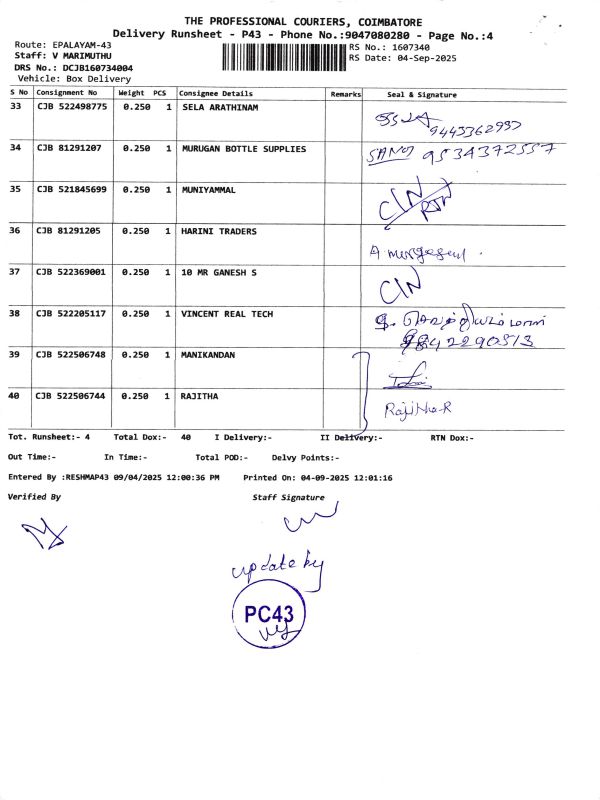 THE PROFESSIONAL COURIERS, COIMBATORE
Delivery Runsheet - P43 - Phone No.:9047080280 - Page No.:4
Route: EPALAYAM-43
Staff: V MARIMUTHU
DRS No.: DCJB160734004
Vehicle: Box Delivery
RS No.: 1607340
RS Date: 04-Sep-2025
S No Consignment No Weight PCS Consignee Details Remarks Seal & Signature
33 CJB 522498775 0.250 1 SELA ARATHINAM
9443362997
34 CJB 81291207 0.250 1 MURUGAN BOTTLE SUPPLIES 9534372557
35 CJB 521845699 0.250 1 MUNIYAMMAL CIN
RTN
36 CJB 81291205 0.250 1 HARINI TRADERS
A murugesan
37 CJB 522369001 0.250 1 10 MR GANESH S CIN
38 CJB 522205117 0.250 1 VINCENT REAL TECH
9842290513
39 CJB 522506748 0.250 1 MANIKANDAN
40 CJB 522506744 0.250 1 RAJITHA
Rajitha-R
Tot. Runsheet:- 4 Total Dox:- 40 I Delivery:- II Delivery:- RTN Dox:-
Out Time:- In Time:- Total POD:- Delvy Points:-
Entered By :RESHMAP43 09/04/2025 12:00:36 PM Printed On: 04-09-2025 12:01:16
Verified By Staff Signature
update by
PC43